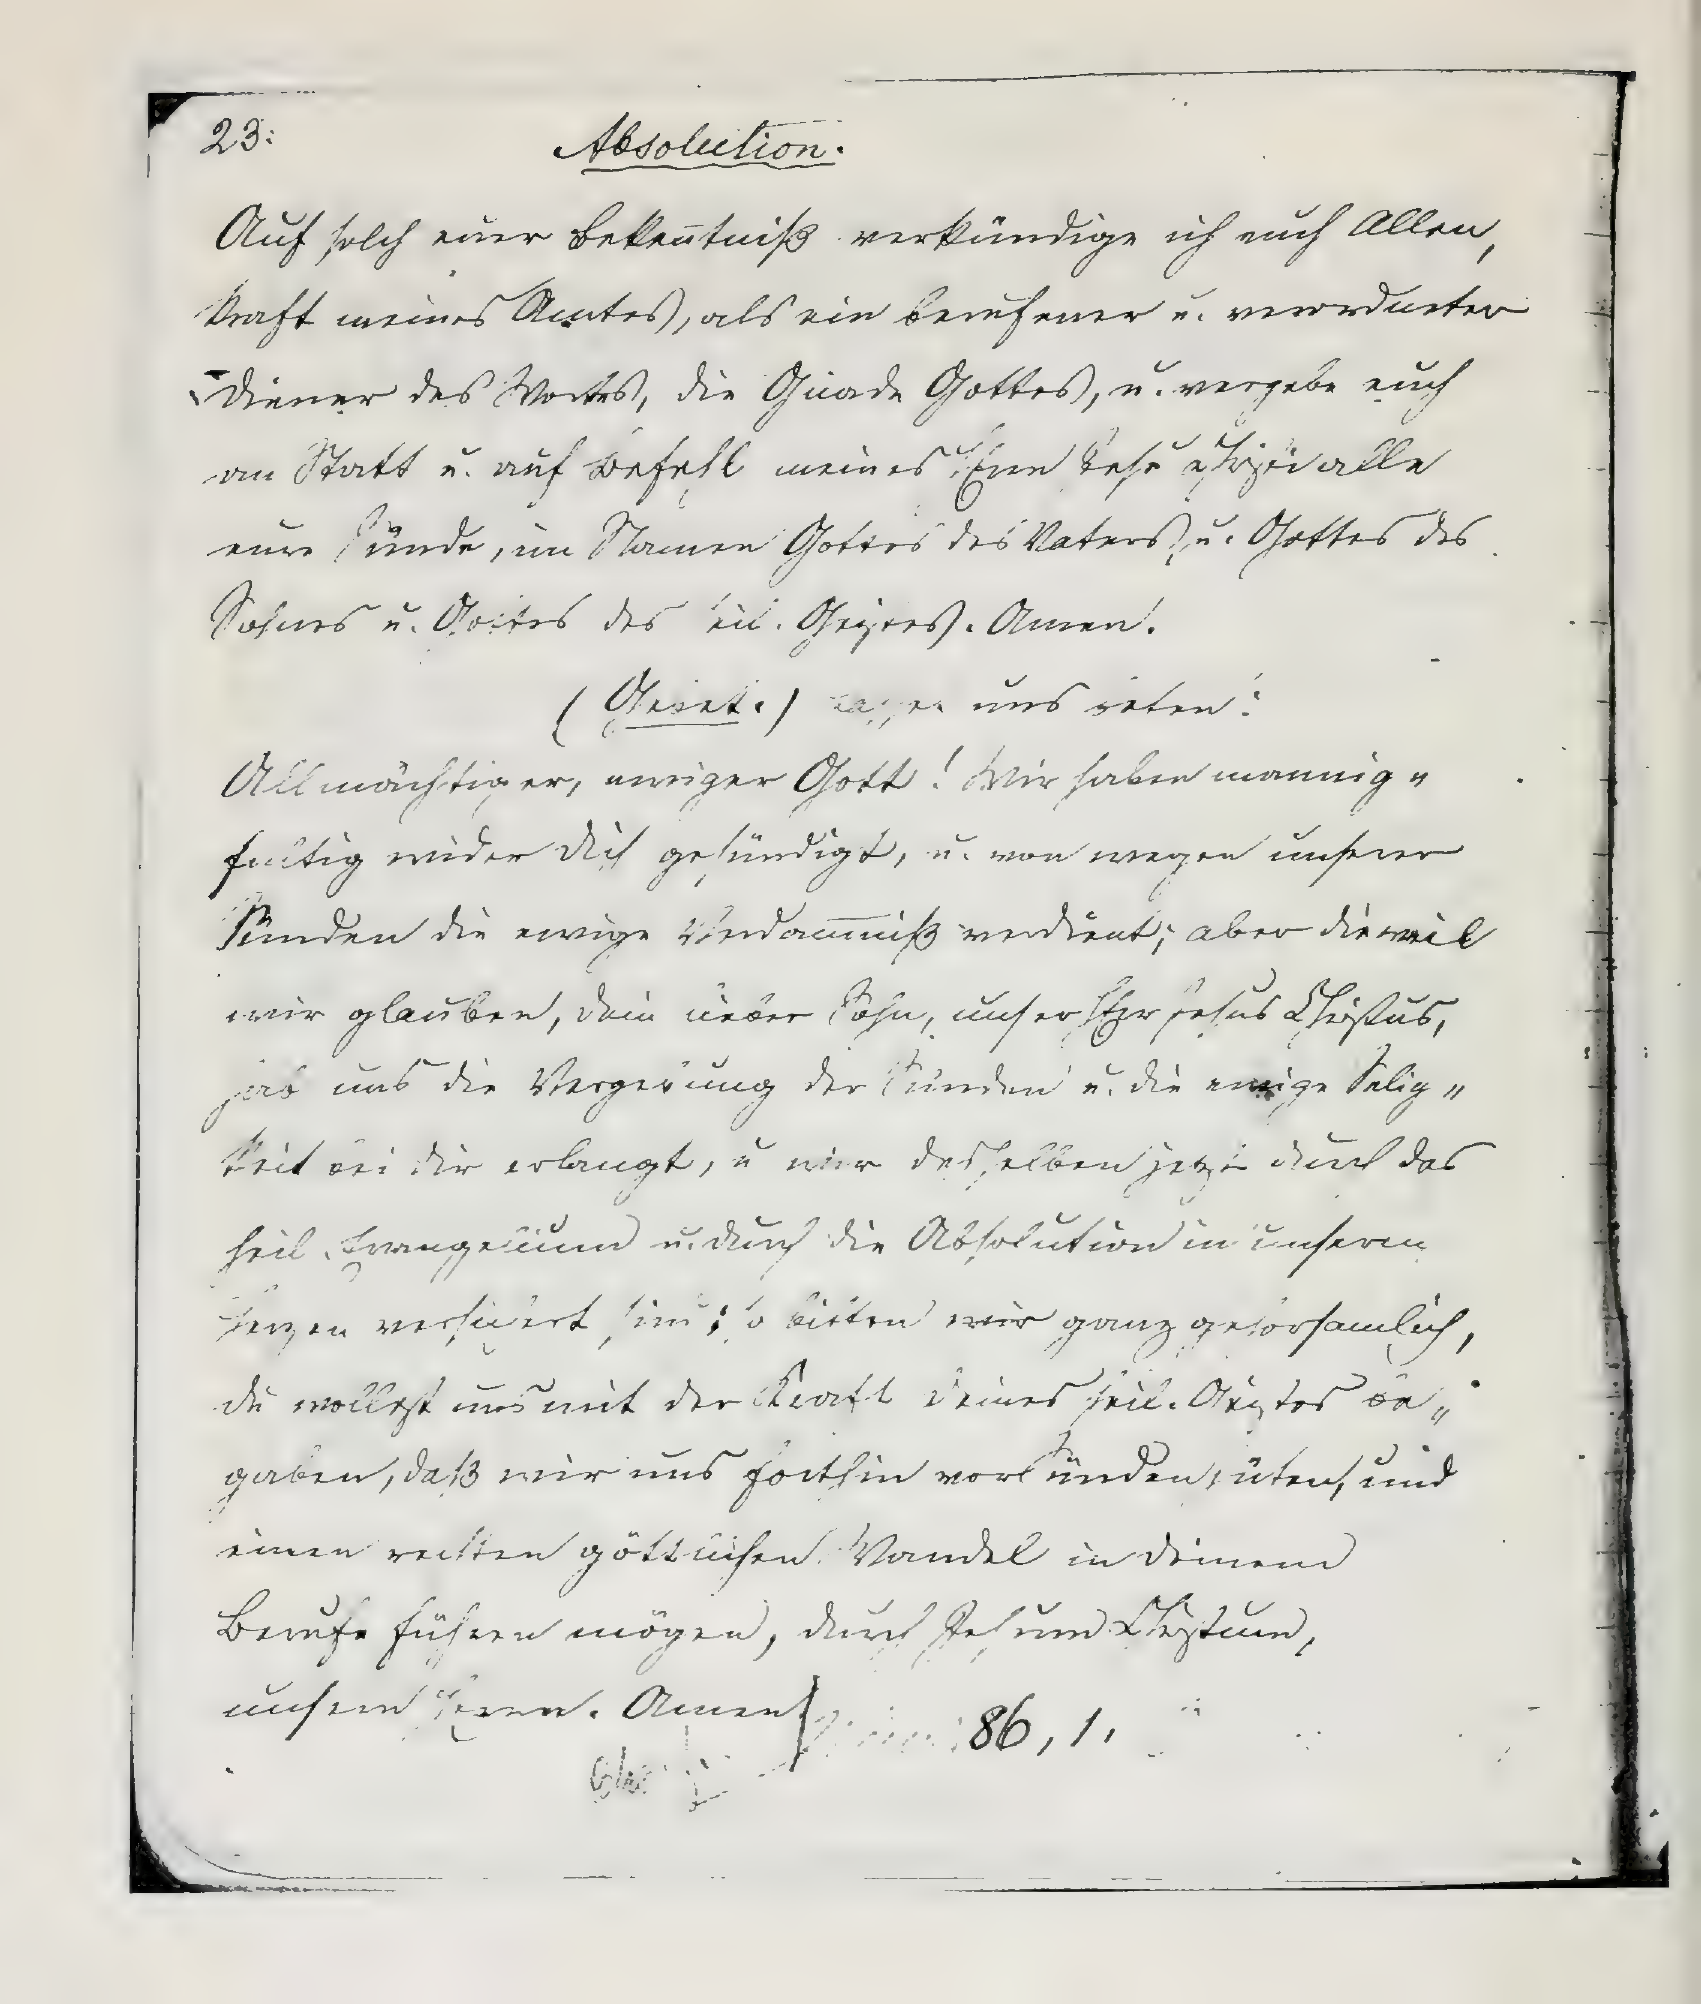 23:
Absolution.
Auf solch euer Bekenntniß verkündige ich euch Allen,
kraft meines Amtes, als ein berufener u. verordneter
Diener des Wortes, die Gnade Gottes, u. vergebe euch
an Statt u. auf Befehl meines HErrn Jesu Christi alle
eure Sünde, im Namen Gottes des Vaters, u. Gottes des
Sohnes u. Gottes des heil. Geistes. Amen.
(Gebet.) Lasset uns beten:
Allmächtiger, ewiger Gott! Wir haben mannig„
faltig wider dich gesündigt, u. von wegen unserer
Sünden die ewige Verdammniß verdient; aber dieweil
wir glauben, dein lieber Sohn, unser HErr Jesus Christus,
hab uns die Vergebung der Sünden u. die ewige Selig„
keit bei dir erlangt, u wir desselben jetzt durch das
heil. Evangelium u. durch die Absolution in unseren
Herzen versichert sind; so bitten wir ganz gehorsamlich,
du wollest uns mit der Kraft deines heil. Geistes be„
gaben, daß wir uns forthin vor Sünden hüten, und
einen rechten göttlichen Wandel in deinem
Berufe führen mögen, durch Jesum Christum,
unsern Herrn. Amen 86, 1.